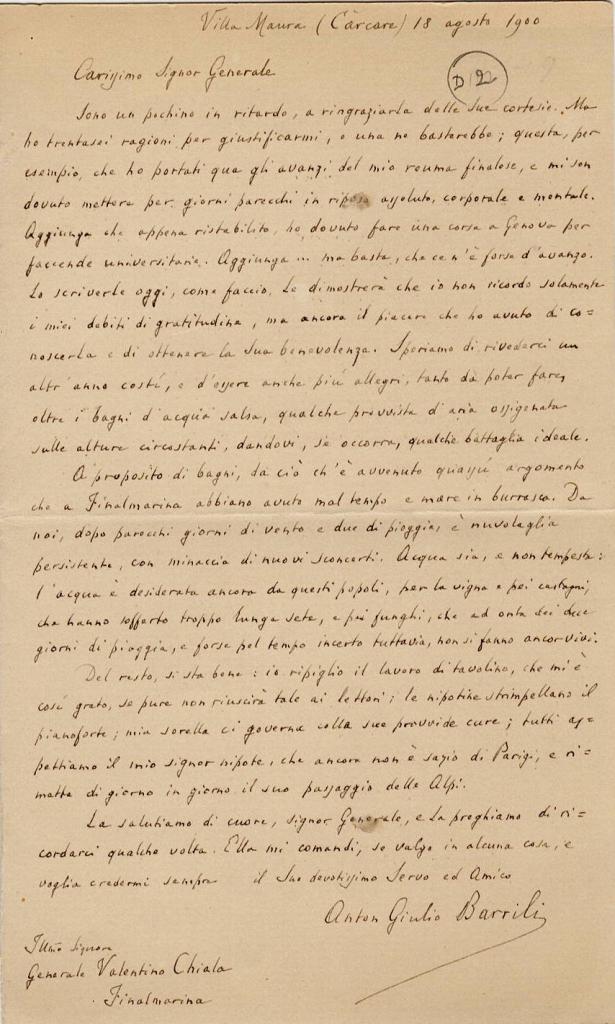 Villa Maura (Càrcare) 18 agosto 1900
D 22
Carissimo Signor Generale
Sono un pochino in ritardo, a ringraziarla delle Sue cortesie. Ma
ho trentasei ragioni per giustificarmi, e una ne basterebbe; questa, per
esempio, che ho portati qua gli avanzi del mio reuma finalese, e mi son
dovuto mettere per giorni parecchi in riposo assoluto, corporale e mentale.
Aggiunga che appena ristabilito, ho dovuto fare una corsa a Genova per
faccende universitarie. Aggiunga ... ma basta, che ce n'è forse d'avanzo.
Lo scriverle oggi, come faccio, Le dimostrerà che io non ricordo solamente
i miei debiti di gratitudine, ma ancora il piacere che ho avuto di co=
noscerla e di ottenere la Sua benevolenza. Speriamo di rivederci un
altr'anno costì, e d'essere anche più allegri, tanto da poter fare,
oltre i bagni d'acqua salsa, qualche provvista d'aria ossigenata
sulle alture circostanti, dandovi, se occorra, qualche battaglia ideale.
A proposito di bagni, da ciò ch'è avvenuto quassù argomento
che a Finalmarina abbiano avuto mal tempo e mare in burrasca. Da
noi, dopo parecchi giorni di vento e due di pioggia, è nuvolaglia
persistente, con minaccia di nuovi sconcerti. Acqua sia, e non tempesta:
l'acqua è desiderata ancora da questi popoli, per la vigna e pei castagni,
che hanno sofferto troppo lunga sete, e pei funghi, che ad onta dei due
giorni di pioggia, e forse pel tempo incerto tuttavia, non si fanno ancor vivi.
Del resto, si sta bene: io ripiglio il lavoro di tavolino, che mi è
così grato, se pure non riuscirà tale ai lettori; le nipotine strimpellano il
pianoforte; mia sorella ci governa colle sue provvide cure; tutti as=
pettiamo il mio signor nipote, che ancora non è sazio di Parigi, e ri=
mette di giorno in giorno il suo passaggio delle Alpi.
La salutiamo di cuore, signor Generale, e La preghiamo di ri=
cordarci qualche volta. Ella mi comandi, se valgo in alcuna cosa, e
voglia credermi sempre il Suo devotissimo Servo ed Amico
Anton Giulio Barrili
Illmo Signore
Generale Valentino Chiala
Finalmarina